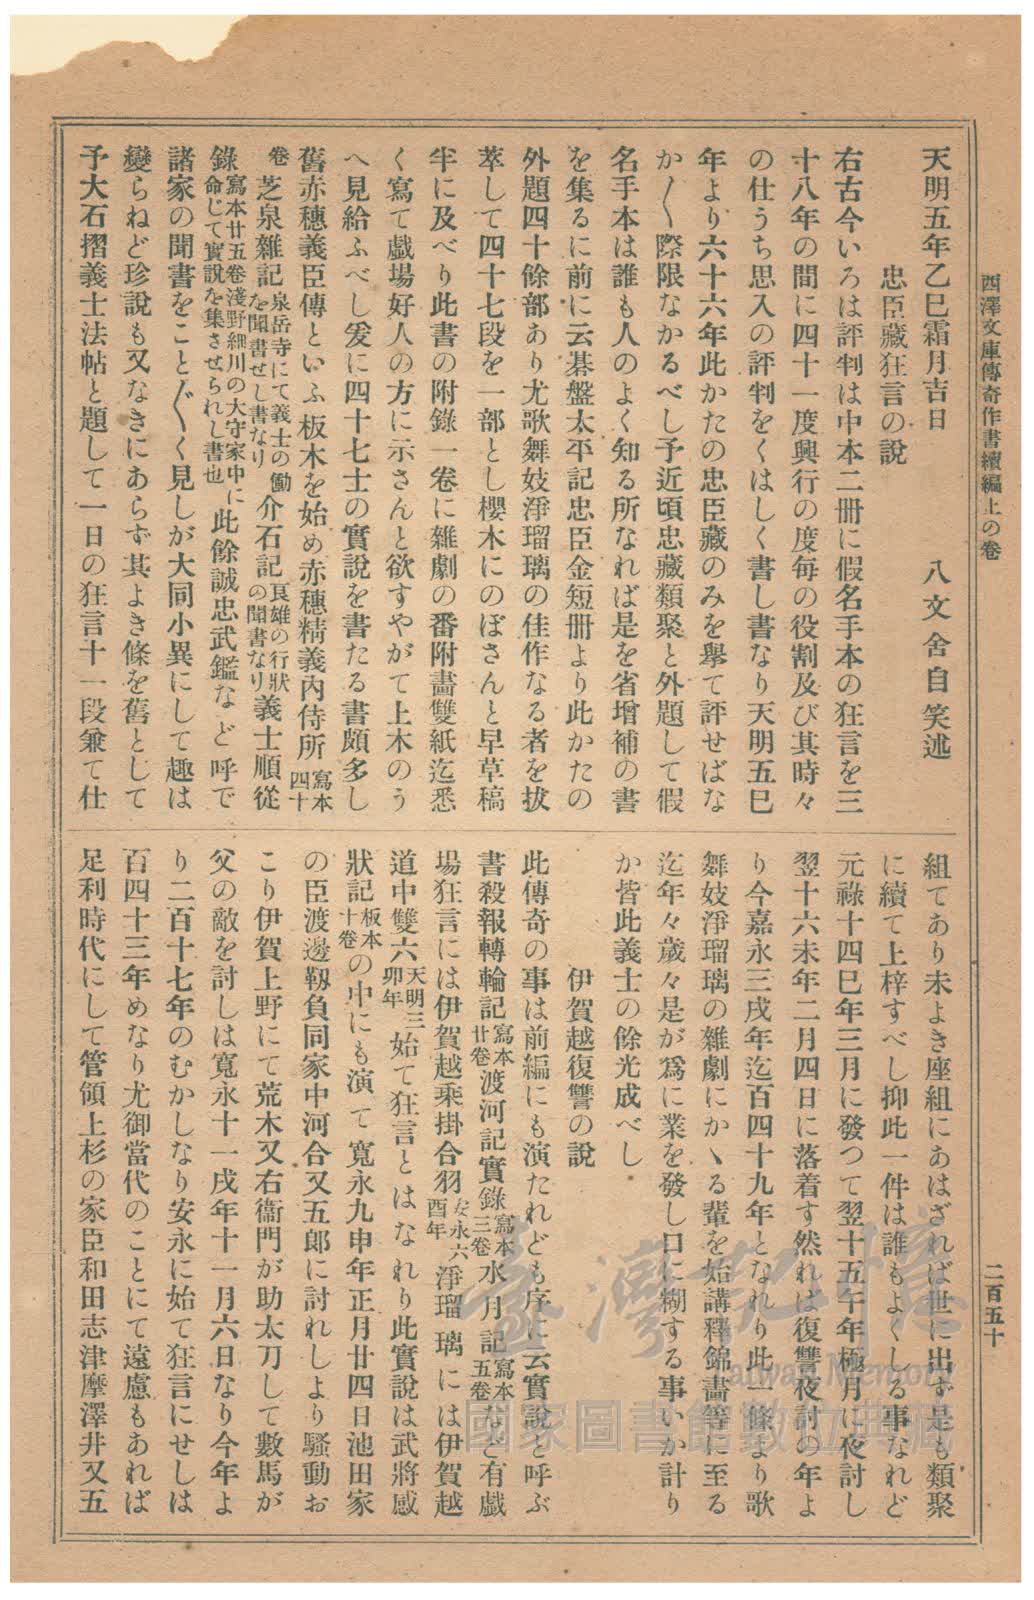 西澤文庫傳奇作書續編上の卷
二百五十
天明五年乙巳霜月吉日
八文舍自笑述
忠臣藏狂言の說
右古今いろは評判は中本二冊に假名手本の狂言を三
十八年の間に四十一度興行の度每の役割及び其時々
の仕うち思入の評判をくはしく書し書なり天明五巳
年より六十六年此かたの忠臣藏のみを擧て評せばな
か〱際限なかるべし予近頃忠臣藏類聚と外題して假
名手本は誰も人のよく知る所なれば是を省增補の書
を集るに前に云碁盤太平記忠臣金短冊より此かたの
外題四十餘部あり尤歌舞妓淨瑠璃の佳作なる者を拔
萃して四十七段を一部とし櫻木にのぼさんと早草稿
半に及べり此書の附錄一卷に雜劇の番附畵雙紙迄悉
く寫て戲場好人の方に示さんと欲すやがて上木のう
へ見給ふべし爰に四十七士の實說を書たる書頗多し
舊赤穗義臣傳といふ板木を始め赤穗精義內侍所寫本四十
卷芝泉雜記泉岳寺にて義士の働を聞書せし書なり介石記良雄の行狀の聞書なり義士順從
錄寫本廿五卷淺野細川の大守家中に命じて實說を集させられし書也此餘誠忠武鑑など呼で
諸家の聞書をこと〲く見しが大同小異にして趣は
變らねど珍說も又なきにあらず其よき條を舊として
予大石摺義士法帖と題して一日の狂言十一段兼て仕
組てあり未よき座組にあはざれば世に出ず是も類聚
に續て上梓すべし抑此一件は誰もよくしる事なれど
元祿十四巳年三月に發つて翌十五午年極月に夜討し
翌十六未年二月四日に落着す然れば復讐夜討の年よ
り今嘉永三戌年迄百四十九年となれり此一條より歌
舞妓淨瑠璃の雜劇にかゝる輩を始講釋錦畵等に至る
迄年々歲々是が爲に業を發し口に糊する事いか計り
か皆此義士の餘光成べし
伊賀越復讐の說
此傳奇の事は前編にも演たれども序に云實說と呼ぶ
書殺報轉輪記寫本廿卷渡河記實錄寫本三卷水月記寫本五卷など有戲
場狂言には伊賀越乘掛合羽安永六酉年淨瑠璃には伊賀越
道中雙六天明三卯年始て狂言とはなれり此實說は武將感
狀記板本十卷の中にも演て寬永九申年正月廿四日池田家
の臣渡邊靱負同家中河合又五郎に討れしより騷動お
こり伊賀上野にて荒木又右衞門が助太刀して數馬が
父の敵を討しは寬永十一戌年十一月六日なり今年よ
り二百十七年のむかしなり安永に始て狂言にせしは
百四十三年めなり尤御當代のことにて遠慮もあれば
足利時代にして管領上杉の家臣和田志津摩澤井又五
臺灣記憶
Taiwan Memory
國家圖書館數位典藏